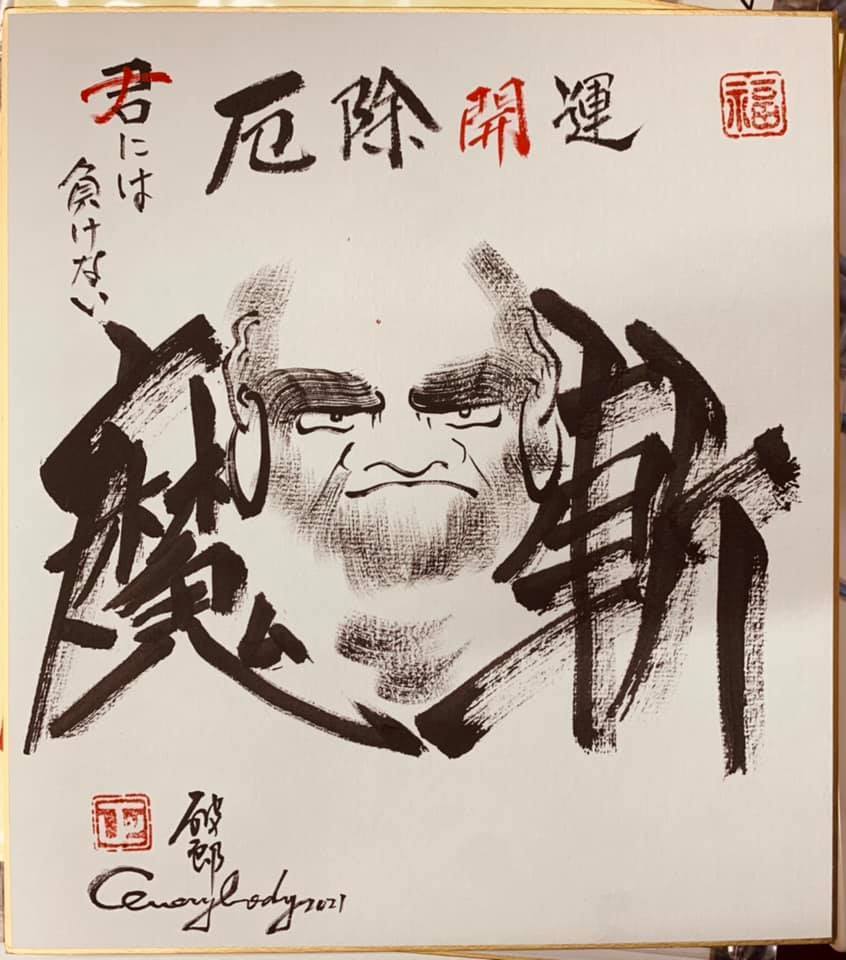 福
厄除開運
君には
負けない
斬魔
2021